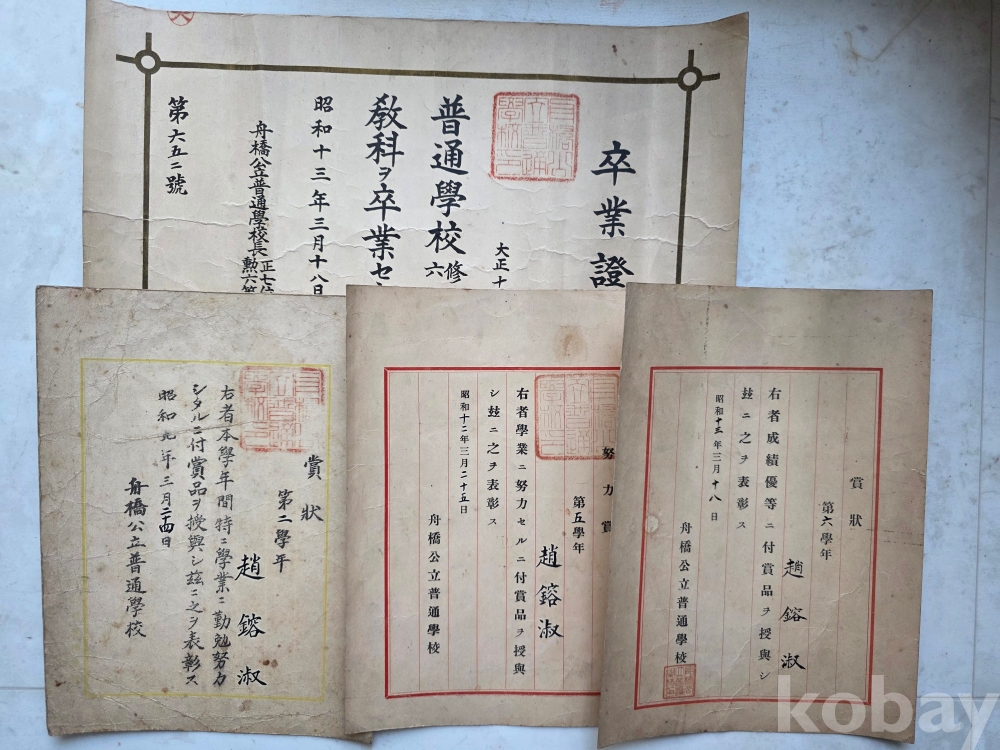 卒業證
大正十
普通學校修
六
敎科ヲ卒業セ
昭和十三年三月十八日
舟橋公立普通學校長正七位
勲六等
第六五二號
賞狀
第二學年
趙鎔淑
右者本學年間特ニ學業ニ勤勉努力
シタルニ付賞品ヲ授與シ玆ニ之ヲ表彰ス
昭和九年三月二四日
舟橋公立普通學校
努力賞
第五學年
趙鎔淑
右者學業ニ努力セルニ付賞品ヲ授與
シ玆ニ之ヲ表彰ス
昭和十二年三月二十五日
舟橋公立普通學校
賞狀
第六學年
趙鎔淑
右者成績優等ニ付賞品ヲ授與シ
玆ニ之ヲ表彰ス
昭和十三年三月十八日
舟橋公立普通學校
kobay